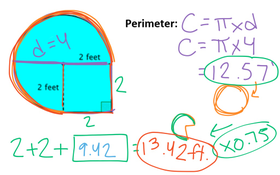 Perimeter:
C = π x d
C = π x 4
= 12.57
d = 4
2 feet
2 feet
2
2
x 0.75
2 + 2 + 9.42 = 13.42 ft.